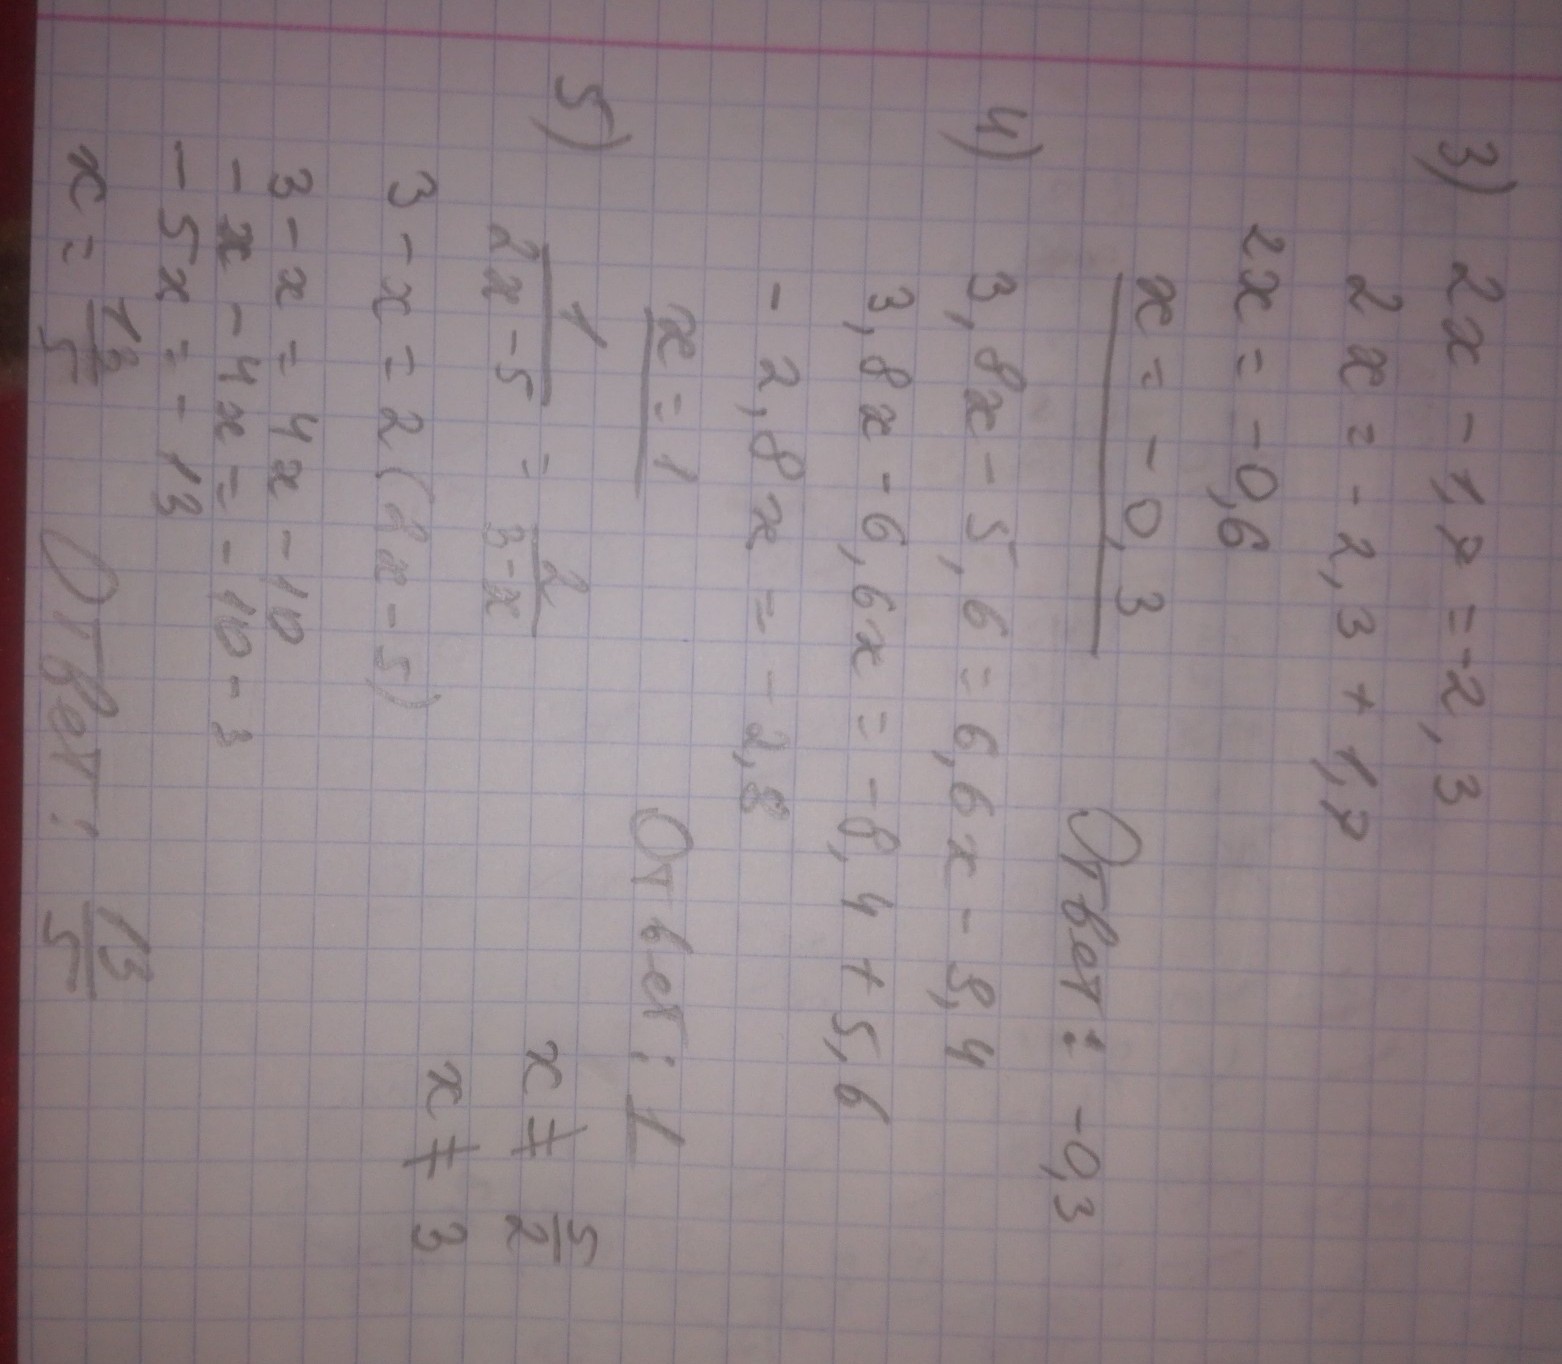 3) 2x - 1,7 = -2,3
2x = -2,3 + 1,7
2x = -0,6
x = -0,3 Ответ: -0,3
4) 3,8x - 5,6 = 6,6x - 8,4
3,8x - 6,6x = -8,4 + 5,6
-2,8x = -2,8
x = 1 Ответ: 1
5) 1/(2x-5) = 2/(3-x) x ≠ 5/2
3 - x = 2(2x - 5) x ≠ 3
3 - x = 4x - 10
-x - 4x = -10 - 3
-5x = -13
x = 13/5 Ответ: 13/5